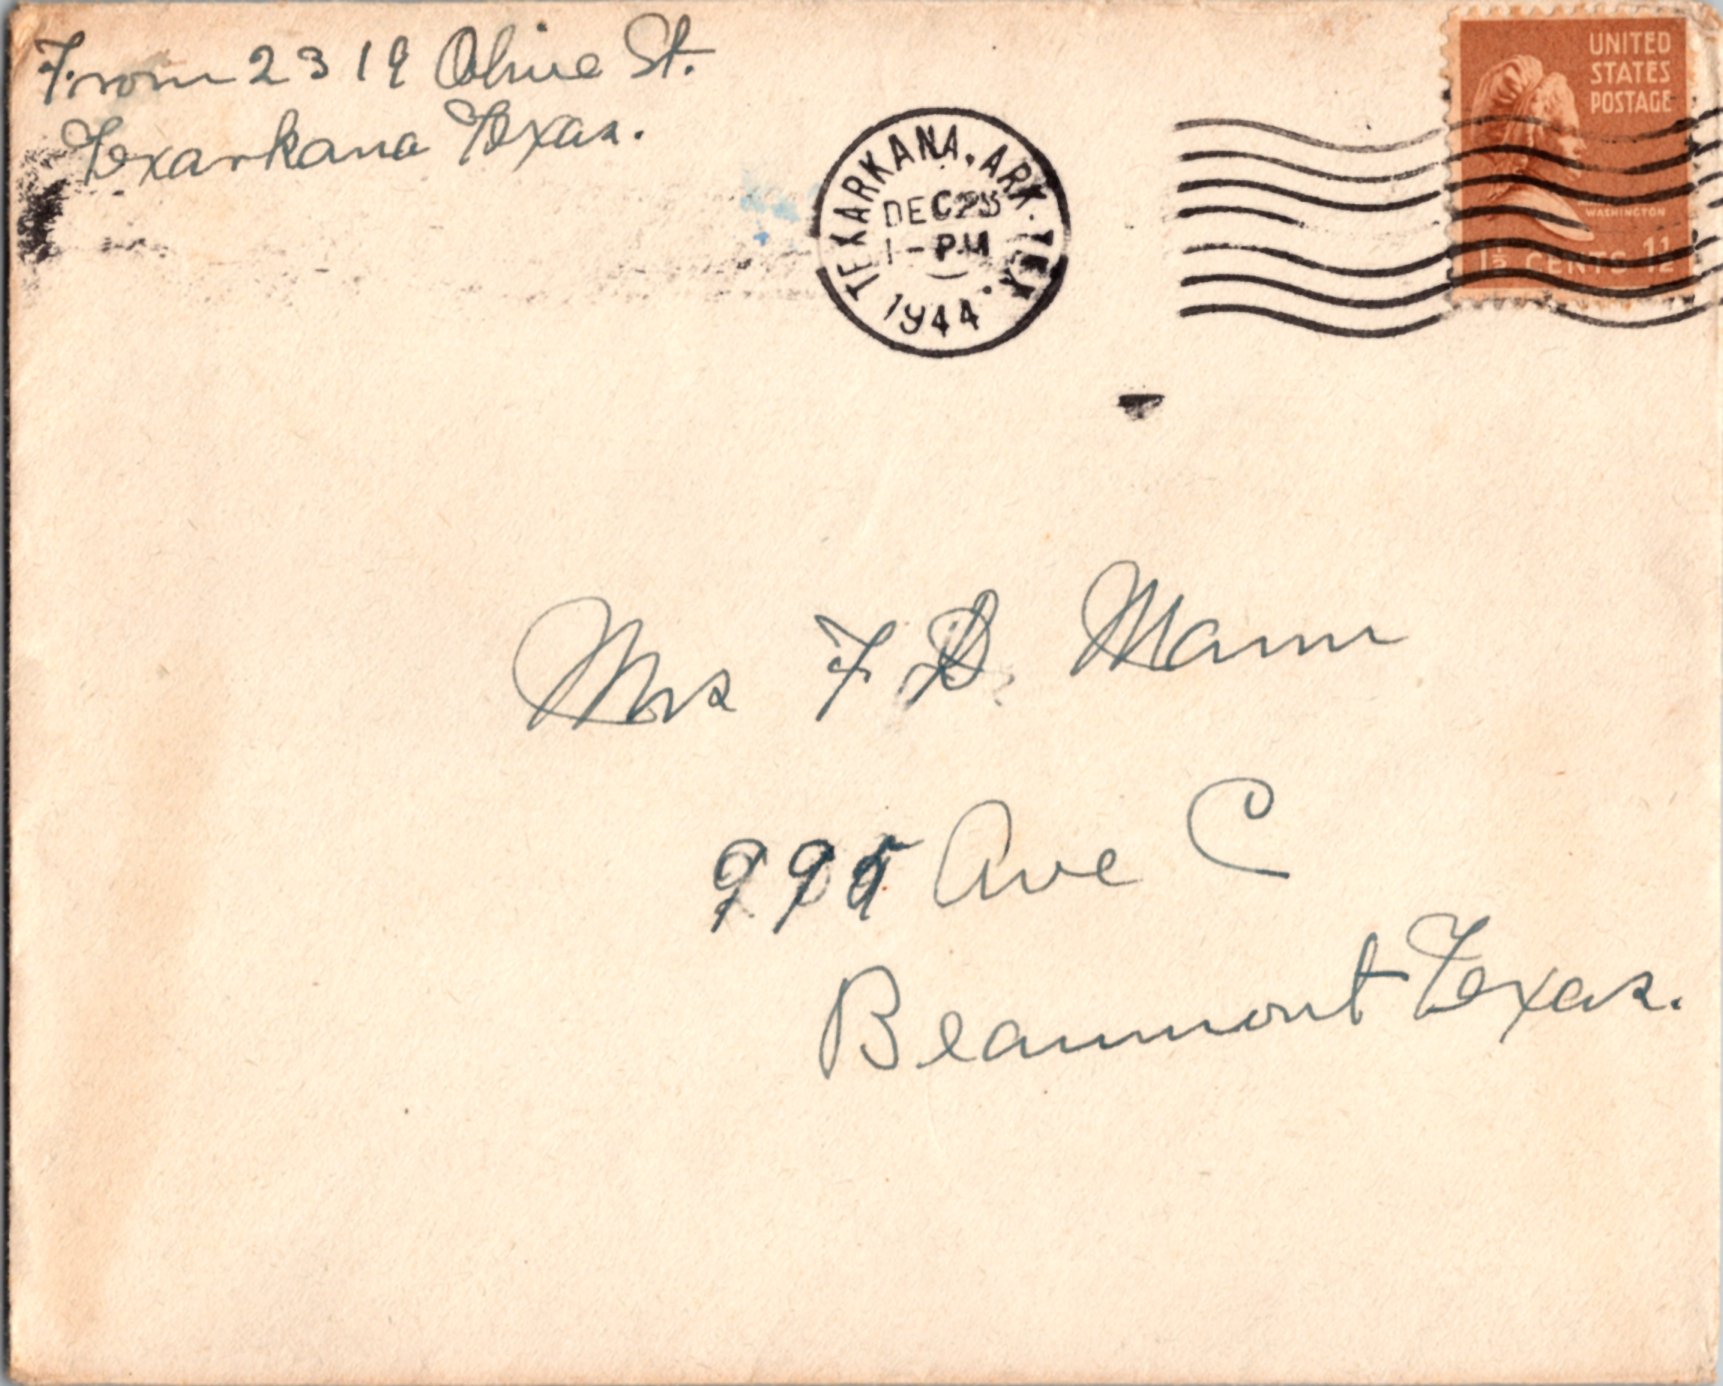 From 2319 Olive St.
Texarkana Texas.
TEXARKANA, ARK.-TEX.
DEC 25
1-PM
1944
UNITED
STATES
POSTAGE
WASHINGTON
1½ CENTS 1½
Mrs F D. Mann
995 Ave C
Beaumont Texas.